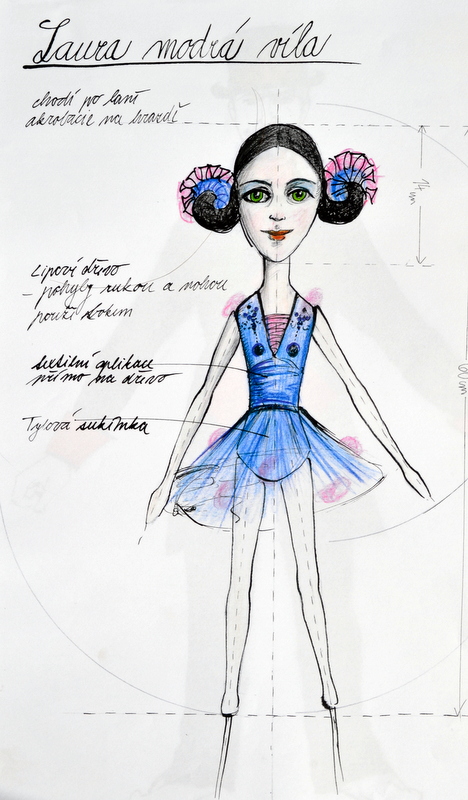 Laura modrá víla
chodí po laně
akrobacie na hrazdě
Lipové dřevo
- pohyby rukou a nohou
pouze bokem
textilní aplikace
přímo na dřevo
Tylová sukínka
14 cm